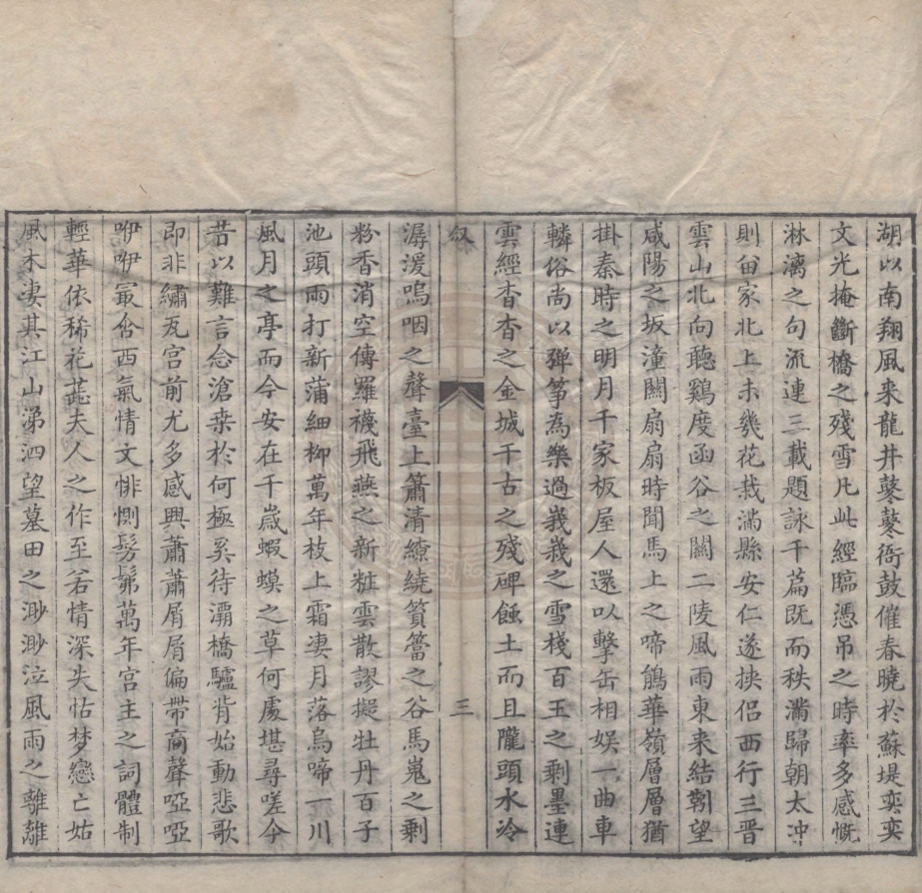 湖以南翔風来龍井鼕鼕衙鼓催春曉於蘇堤奕奕
文光掩斷橋之殘雪凡此經臨憑吊之時率多感慨
淋漓之句流連三載題詠千篇既而秩滿歸朝太冲
則留家北上未幾花栽滿縣安仁遂挟侣西行三晋
雲山北向聽鷄度函谷之關二陵風雨東来結靷望
咸陽之坂潼關扇扇時聞馬上之啼鵑華嶺層層猶
掛秦時之明月千家板屋人還以擊缶相娱一曲車
轔俗尚以彈筝為樂過峩峩之雪棧百玉之剩墨連
雲經杳杳之金城千古之殘碑蝕土而且隴頭水冷
叙
三
潺湲嗚咽之聲臺上簫清繚繞篔簹之谷馬嵬之剩
粉香消空傳羅襪飛燕之新粧雲散謬擬牡丹百子
池頭雨打新蒲細柳萬年枝上霜凄月落烏啼一川
風月之亭而今安在千嵗蝦蟆之草何處堪尋嗟今
昔以難言念滄桒於何極奚待灞橋驢背始動悲歌
即非繡瓦宫前尤多感興蕭蕭屑屑偏帶商聲啞啞
咿咿㝡含西氣情文悱惻髣髴萬年宫主之詞體制
輕華依稀花蕋夫人之作至若情深失怙梦戀亡姑
風木凄其江山涕泗望墓田之渺渺泣風雨之離離